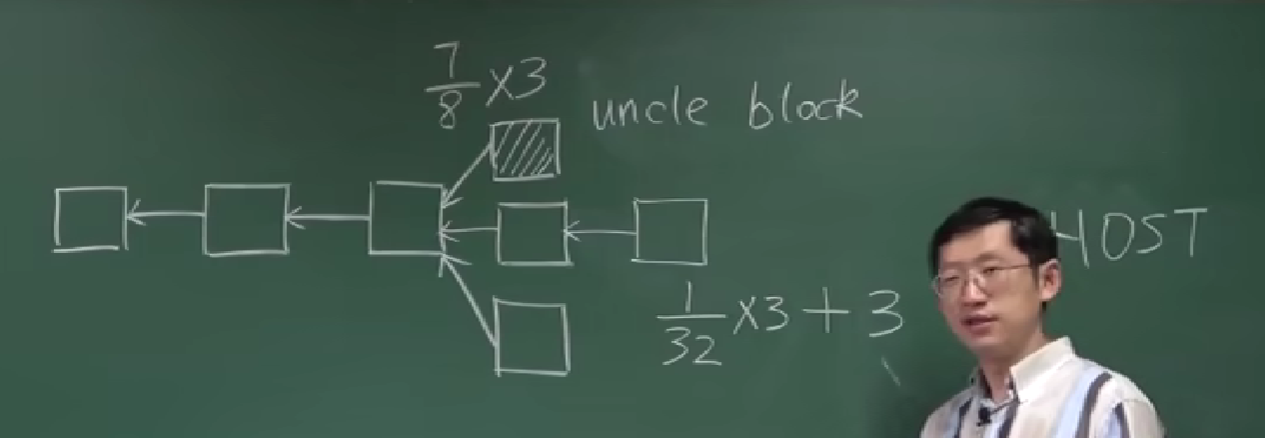 7/8 ×3
uncle block
HOST
1/32 ×3 + 3